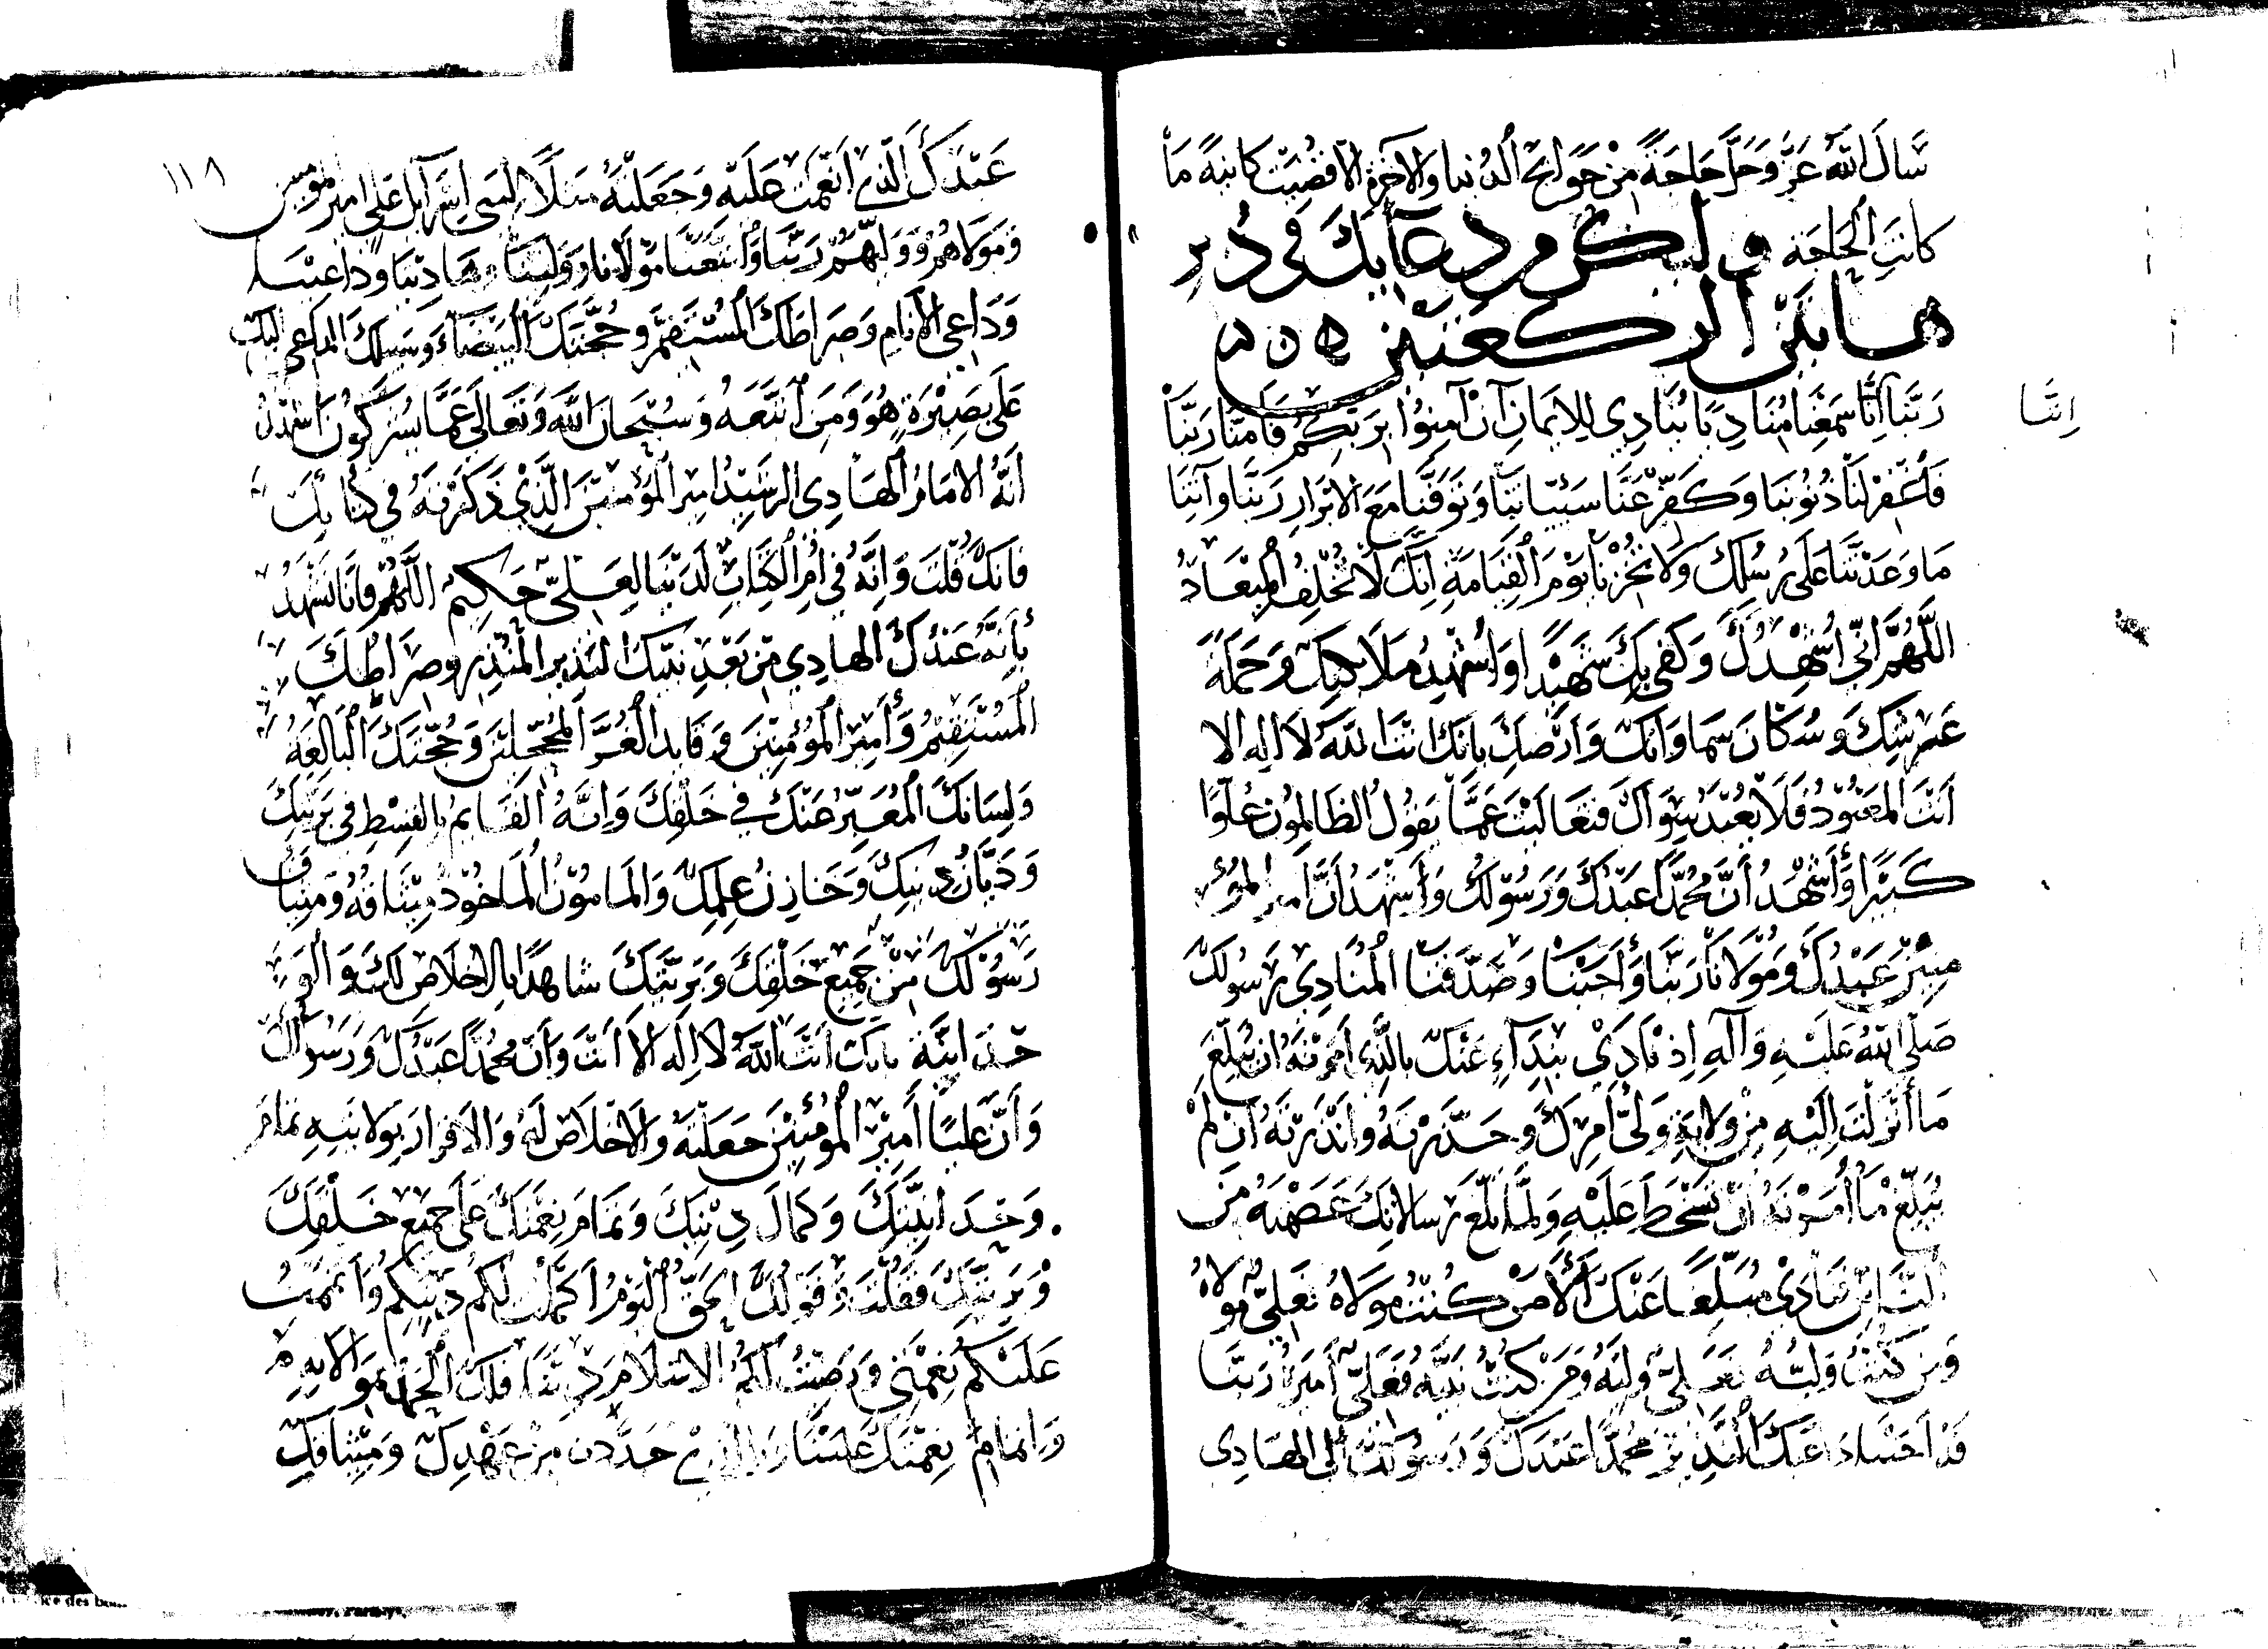 سَّالَ اللهَ عَزَّ وَجَلَّ حَاجَةً مِنْ حَوَائِجِ الدُنيا وَالآخِرَةِ الاّ قُضِيَتْ كائِنَةً مَا
كانَتِ الْحَاجَة وليكن من دعائك في دبر
هاتين الركعتين
رَبَّنا اِنَّنا سَمِعْنا مُنادِيًا يُنَادِي لِلإيمَانِ اَنْ آمِنُوا بِرَبِّكُمْ فَآمَنَّا رَبَّنَا
اِنَّنا
فَاغْفِرْ لَنَا ذُنُوبَنا وَكَفِّرْ عَنَّا سَيِّئاتِنا وَتَوَفَّنا مَعَ الابْرَارِ رَبَّنا وَآتِنَا
مَا وَعَدْتَنَا عَلَى رُسُلِكَ وَلَا تُخْزِنَا يَوْمَ الْقِيَامَةِ اِنَّكَ لَا تُخْلِفُ الْمِيْعَادَ
اللَّهُمَّ اِنّي اُشْهِدُكَ وَكَفى بِكَ شَهِيْدًا وَاُشْهِدُ مَلَائِكَتِكَ وَحَمَلَةَ
عَرْشِكَ وَسُكّانَ سَمَاوَاتِكَ وَاَرْضِكَ بِاَنَّكَ اَنْتَ اللهُ لَا اِلهَ الا
اَنْتَ الْمَعْبُوْدُ فَلَا يُعْبَدُ سِوَاكَ فَتَعَالَيْتَ عَمَّا يَقُوْلُ الظَّالِمُونَ عُلُوًّا
كَبِيْرًا وَأَشْهَدُ أَنَّ مُحَمَّدًا عَبْدُكَ وَرَسُوْلُكَ وَأَشْهَدُ أَنَّ أَمِيْرَ الْمُؤ
مِنِيْنَ عَبْدُكَ وَمَوْلَانَا رَبَّنَا وَأَجَبْنَا وَصَدَّقْنَا الْمُنَادِي رَسُولَكَ
صَلَّى اللهُ عَلَيْهِ وَآلِهِ اِذْ نَادَى بِنِدَآءٍ عَنْكَ بِالَّذِي اَمَرْتَهُ اَنْ يُبَلِّغَ
مَا أَنْزَلْتَ اِلَيْهِ مِنْ وَلَايَةِ وَلِيِّ أَمْرِكَ وَحَذَّرْتَهُ وَأَنْذَرْتَهُ اَنْ لَمْ
يُبَلِّغْ مَا أَمَرْتَهُ اَنْ تَسْخَطَ عَلَيْهِ وَلَمَّا بَلَّغَ رِسَالَاتِكَ عَصَمْتَهُ مِنَ
النَّاسِ فَنَادَى مُبَلِّغًا عَنْكَ أَلَا مَنْ كُنْتُ مَوْلَاهُ فَعَلِيٌّ مَوْلَاهُ
وَمَنْ كُنْتُ وَلِيَّهُ فَعَلِيٌّ وَلِيُّهُ وَمَنْ كُنْتُ نَبِيَّهُ فَعَلِيٌّ أَمِيرُهُ رَبَّنَا
قَدْ اَجَبْنَا دَاعِيَكَ النَّذِيرَ مُحَمَّدًا عَبْدَكَ وَرَسُولَكَ اِلَى الهَادِي
١١٨
عَبْدِكَ الَّذِي اَنْعَمْتَ عَلَيْهِ وَجَعَلْتَهُ مَثَلًا لِبَنِي اِسْرَآئِلَ عَلِي امير مومنين
وَمَوْلَاهُمْ وَوَلِيّهُمْ رَبَّنَا وَاتَّبَعْنَا مَوْلَانَا وَوَلِيَّنَا وَهَادِيَنَا وَدَاعِيَنَا
وَدَاعِي الأَنامِ وَصِرَاطَكَ الْمُسْتَقِيْمَ وَحُجَّتَكَ الْبَيْضَآءَ وَسَبِيلَكَ الدَاعِي اليكَ
عَلَى بَصِيْرَةٍ هُوَ وَمَنِ اتَّبَعَهُ وَسُبْحَانَ اللهِ وَتَعَالَى عَمَّا يُشْرِكُوْنَ اَشْهَدُ
اَنَّهُ الامَامُ الْهَادِي الرَشِيْدُ اميرالْمُؤْمِنِيْنَ الَّذِيْ ذَكَرْتَهُ فِي كِتَابِكَ
فَاِنَّكَ قُلْتَ وَاِنَّهُ فِي اُمِّ الْكِتَابِ لَدَيْنَا لَعَلِيٌّ حَكِيْمٌ اللَّهُمَّ فَاِنَّا نَشْهَدُ
بِأَنَّهُ عَبْدُكَ الهَادِي مِنْ بَعْدِ نَبِيِّكَ النَذيرِ الْمُنْذِرِ وَصِرَاطُكَ
الْمُسْتَقِيْمُ وَأَمِيْرُ الْمُؤْمِنِيْنَ وَقَائِدُ الْغُرِّ الْمُحَجَّلِيْنَ وَحُجَّتُكَ الْبَالِغَةُ
وَلِسَانُكَ الْمُعَبِّرُ عَنْكَ فِي خَلْقِكَ وَاِنَّهُ الْقَائِمُ بِالْقِسْطِ فِي بَرِيَّتِكَ
وَدَيَّانُ دِيْنِكَ وَخَازِنُ عِلْمِكَ وَالْمَامُوْنُ الْمَاخُوْذُ مِيْثَاقُهُ وَمِيْثَاقُ
رَسُوْلِكَ مِنْ جَمِيْعِ خَلْقِكَ وَبَرِيَّتِكَ شاهِدًا بِالاخْلَاصِ لَكَ وَالْوَ
حْدَانِيَّةِ بِاَنَّكَ اَنْتَ اللهُ لا اِلهَ الاَّ اَنْتَ وَاَنَّ مُحَمَّدًا عَبْدُكَ وَرَسُوْلُكَ
وَاَنَّ عَلِيًّا أَمِيْرُ الْمُؤْمِنِيْنَ جَعَلْتَهُ وَالْاخْلَاصَ لَهُ وَالْاقْرَارَ بِوَلَايَتِهِ تَمَامَ
وَحْدَانِيَّتِكَ وَكَمَالَ دِيْنِكَ وَتَمَامَ نِعْمَتِكَ عَلَى جَمِيْعِ خَلْقِكَ
وَبَرِيَّتِكَ فَقُلْتَ وَقَوْلُكَ الْحَقُّ الْيَوْمَ اَكْمَلْتُ لَكُمْ دِيْنَكُمْ وَاَتْمَمْتُ
عَلَيْكُمْ نِعْمَتِي وَرَضِيْتُ لَكُمُ الاسْلَامَ دِيْنًا فَلَكَ الْحَمْدُ بِمَوَالَاتِهِ
وَاِتْمَامِ نِعْمَتِكَ عَلَيْنَا بِالَّذِي جَدَّدْتَ مِنْ عَهْدِكَ وَمِيْثَاقِكَ